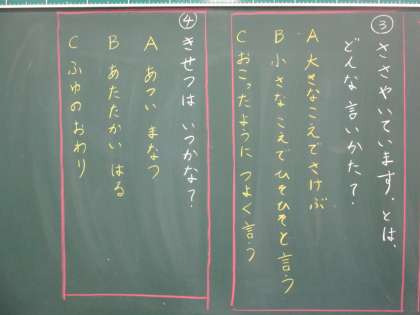 ③ ささやいています。とは、
どんな言いかた？
A 大きなこえでさけぶ
B 小さなこえでひそひそと言う
C おこったように つよく言う
④ きせつは いつかな？
A あつい まなつ
B あたたかい はる
C ふゆの おわり